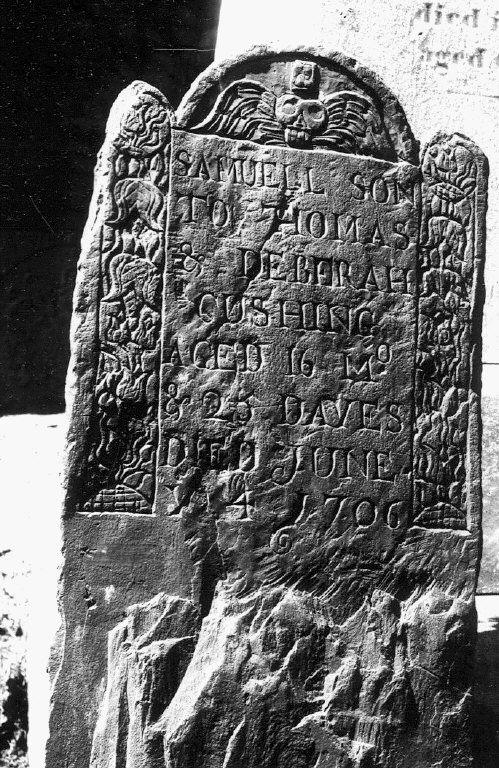 died
aged
SAMUELL SON
TO THOMAS
& DEBERAH
CUSHING
AGED 16 Mº
& 25 DAYES
DIED JUNE
Yᴱ 4 1706